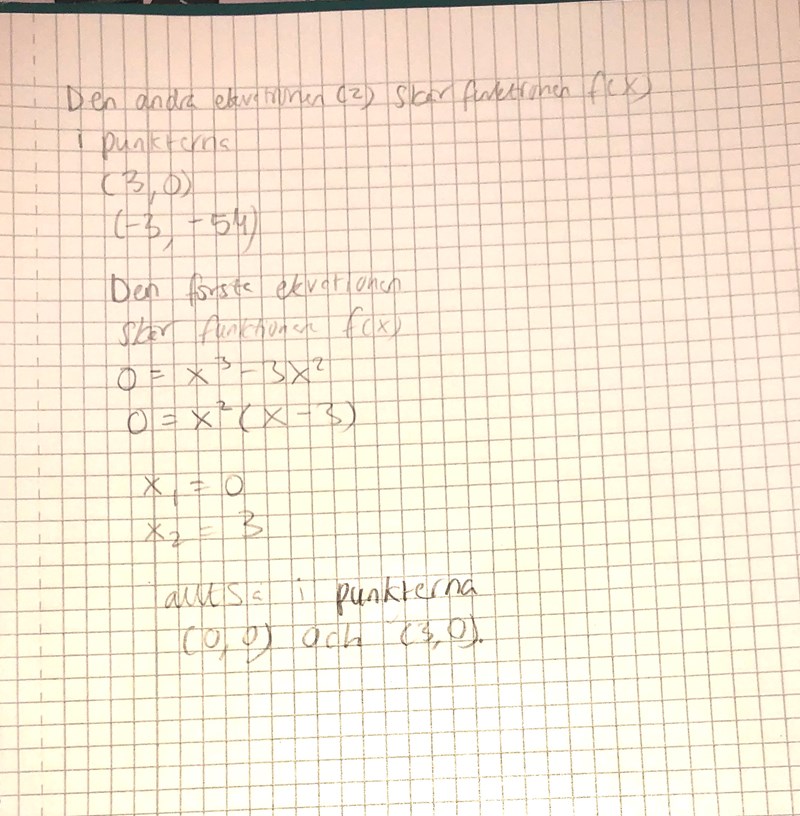 Den andra ekvationen (2) skär funktionen f(x)
i punkterna
(3,0)
(-3, -54)
Den första ekvationen
skär funktionen f(x)
0 = x³ - 3x²
0 = x² (x - 3)
x₁ = 0
x₂ = 3
alltså i punkterna
(0,0) och (3,0).